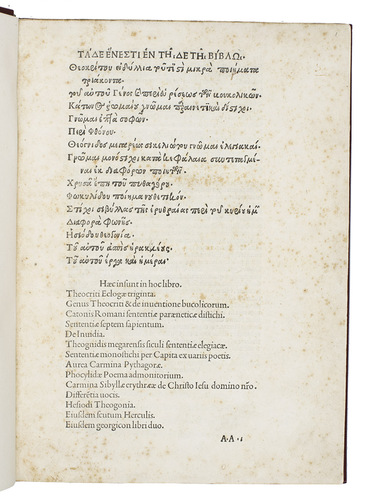 ΤΑΔΕ ΕΝΕΣΤΙ ΕΝ ΤΗΔΕ ΤΗ ΒΙΒΛΩ.
Θεοκρίτου εἰδύλλια τουτέστι μικρὰ ποιήματα
τριάκοντα.
τοῦ αὐτοῦ Γένος καὶ περὶ εὑρέσεως τῶν βουκολικῶν.
Κάτωνος Ῥωμαίου γνῶμαι παραινετικαὶ δίστιχοι.
Γνῶμαι ἑπτὰ σοφῶν.
Περὶ φθόνου.
Θεόγνιδος μεγαρέως σικελιώτου γνῶμαι ἐλεγειακαί.
Γνῶμαι μονόστιχοι κατὰ κεφάλαια συντεταγμέ
ναι ἐκ διαφόρων ποιητῶν.
Χρυσᾶ ἔπη τοῦ πυθαγόρου.
Φωκυλίδου ποίημα νουθετικόν.
Στίχοι σιβύλλας τῆς ἐρυθραίας περὶ τοῦ κυρίου ἡμῶν
Διαφορὰ φωνῆς.
Ἡσιόδου θεογονία.
Τοῦ αὐτοῦ ἀσπὶς ἡρακλέους.
Τοῦ αὐτοῦ ἔργα καὶ ἡμέραι.
Hæc insunt in hoc libro.
Theocriti Eclogæ triginta.
Genus Theocriti & de inuentione bucolicorum.
Catonis Romani sententiæ paræneticæ distichi.
Sententiæ septem sapientum.
De Inuidia.
Theognidis megarensis siculi sententiæ elegiacæ.
Sententiæ monostichi per Capita ex uariis poetis.
Aurea Carmina Pythagoræ.
Phocylidæ Poema admonitorium.
Carmina Sibyllæ erythrææ de Christo Iesu domino nr̃o.
Differẽtia uocis.
Hesiodi Theogonia.
Eiusdem scutum Herculis.
Eiusdem georgicon libri duo.
A.A. I